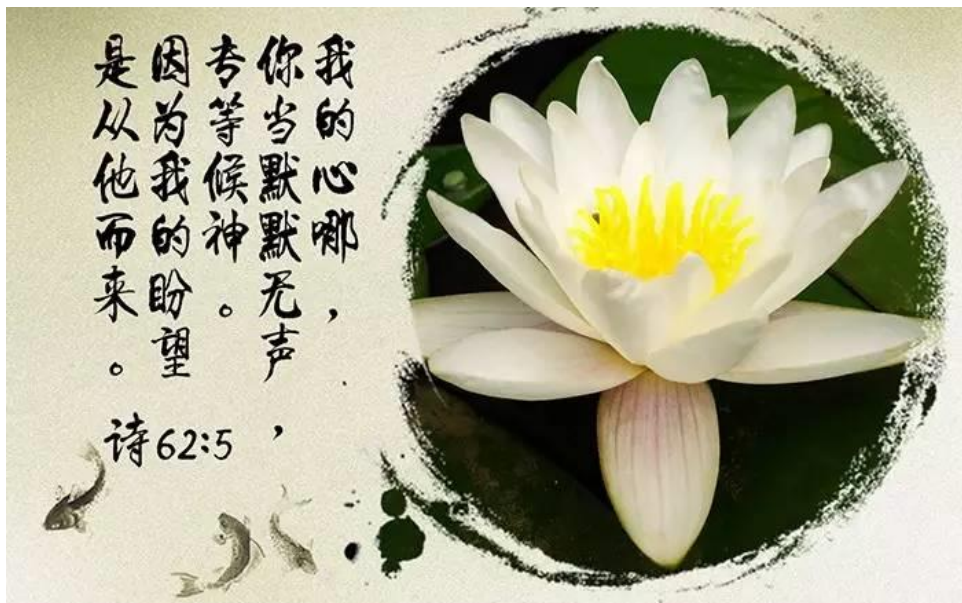 我的心哪，
你当默默无声，
专等候神。
因为我的盼望
是从他而来。
诗62:5